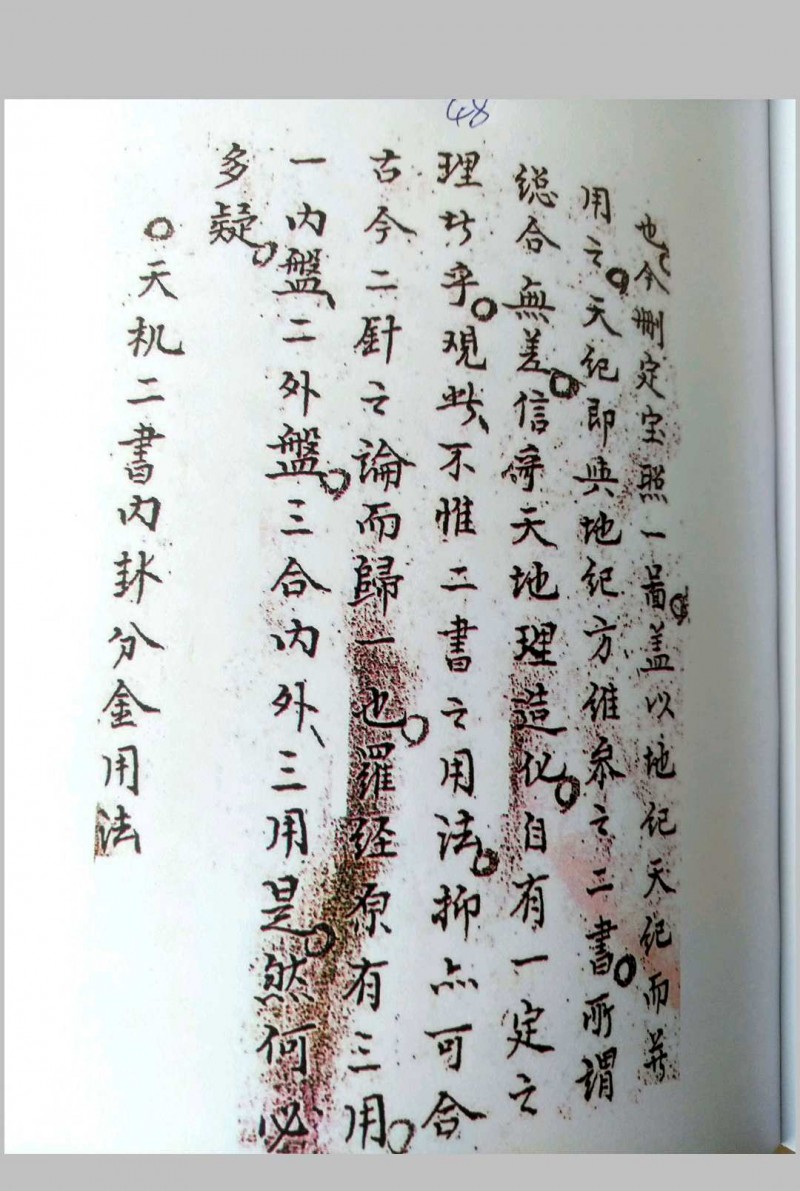 48
也、今删定宝照一啚。盖以地纪天纪而并
用之。天纪即與地纪方维叅之二書。所谓
縂合無差。信乎天地理造化。自有一定之
理㘹乎。观㘹、不惟二書之用法。抑亦可合
古今二針之論而歸一也。羅经原有三用。
一内盤、二外盤。三合内外、三用是。然何必
多疑。
○天机二書内卦分金用法